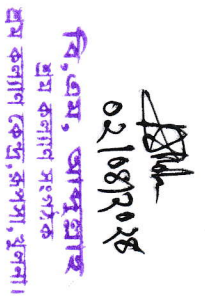 ০২/০৪/২০২৪
বি,এম, আব্দুল্লাহ
শ্রম কল্যাণ সংগঠক
শ্রম কল্যাণ কেন্দ্র, রূপসা, খুলনা।